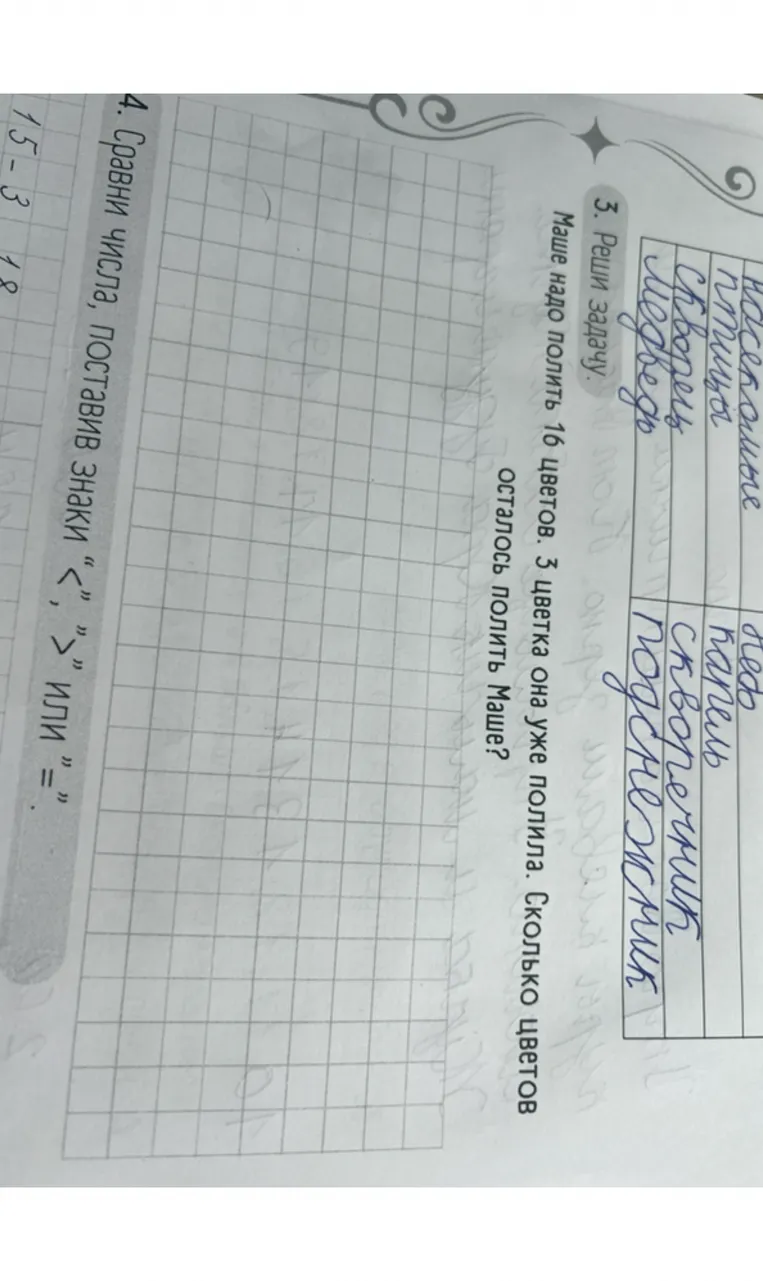 насекомые
птицы
скворец
медведь
капель
скворечник
подснежник
3. Реши задачу.
Маше надо полить 16 цветов. 3 цветка она уже полила. Сколько цветов
осталось полить Маше?
4. Сравни числа, поставив знаки “<”, ”>” или ”=”.
15-3 18